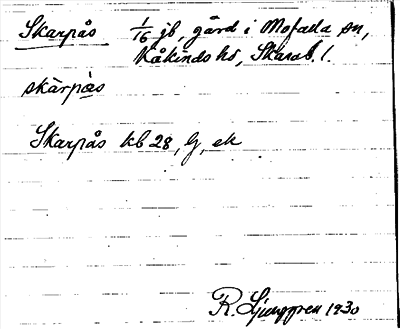 Skarpås 1/16 jb, gård i Mofalla sn,
Kåkinds hd, Skarab. l.
skàrpås
Skarpås kb 28, G, ek
R. Ljunggren 1930